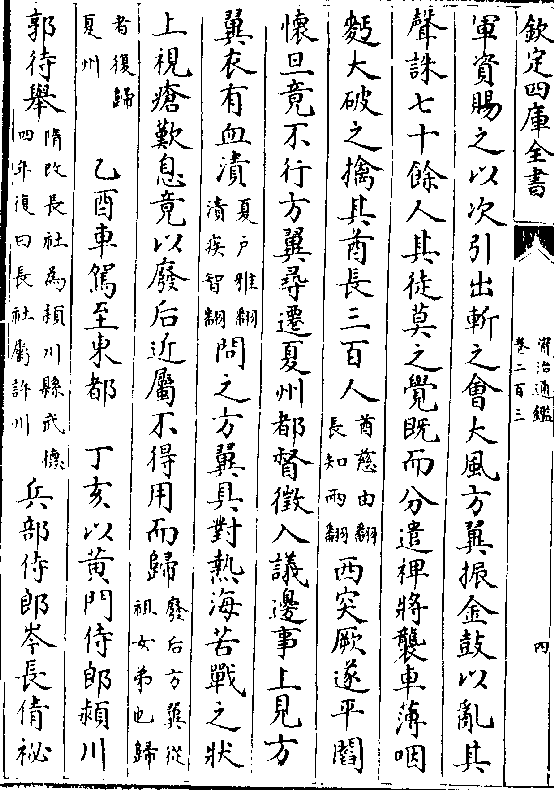 欽定四庫全書
資治通鑑
卷二百三
四
軍資賜之以次引出斬之會大風方翼振金鼓以亂其
聲誅七十餘人其徒莫之覺既而分遣裨將襲車薄咽
麫大破之擒其酋長三百人酋慈由翻長知兩翻西突厥遂平閻
懷旦竟不行方翼尋遷夏州都督徵入議邊事上見方
翼衣有血漬夏户雅翻漬疾智翻問之方翼具對熱海苦戰之狀
上視瘡歎息竟以廢后近屬不得用而歸廢后方翼從祖女弟也歸
者復歸夏州 乙酉車駕至東都 丁亥以黄門侍郎潁川
郭待舉隋改長社為潁川縣武德四年復曰長社屬許州兵部侍郎岑長倩祕